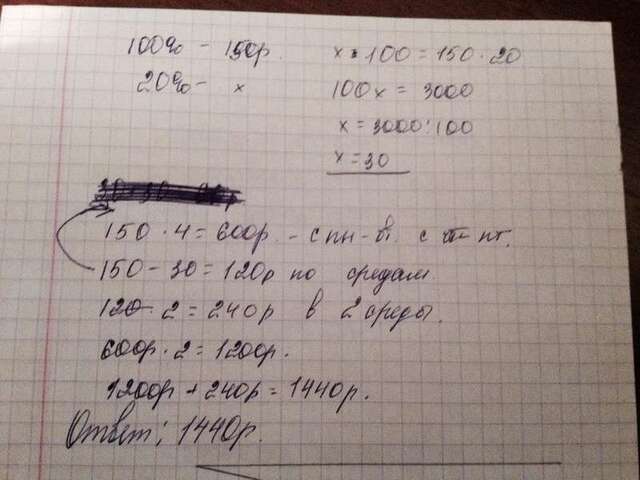 100% - 150р.
20% - x
x · 100 = 150 · 20
100x = 3000
x = 3000:100
x = 30
150 · 4 = 600р. - с пн - вт. с пт.
150 - 30 = 120р по средам
120 · 2 = 240р в 2 среды.
600р · 2 = 1200р.
1200р + 240р = 1440р.
Ответ: 1440р.